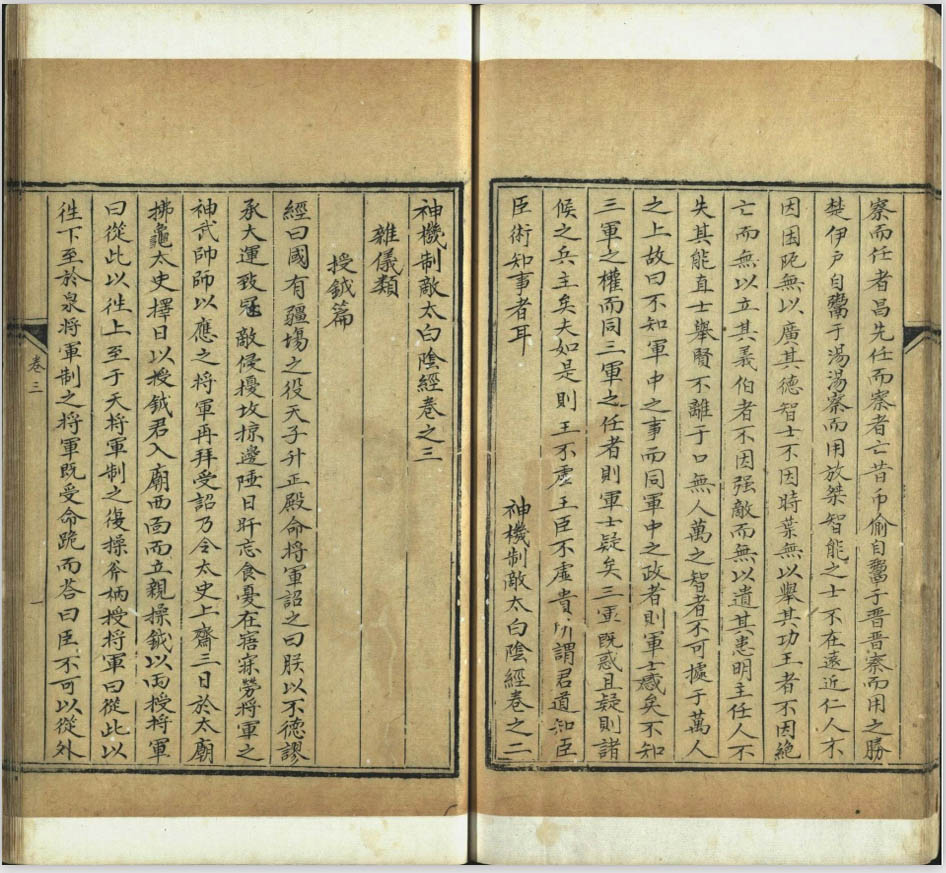 察而任者昌先任而察者亡昔市偷自鬻于晉晉察而用之勝
楚伊尹自鬻于湯湯察而用放桀智能之士不在遠近仁人不
因困阨無以廣其德智士不因時葉無以舉其功王者不因絕
亡而無以立其義伯者不因强敵而無以遺其患明主任人不
失其能直士舉賢不離于口無人萬之智者不可據于萬人
之上故曰不知軍中之事而同軍中之政者則軍士惑矣不知
三軍之權而同三軍之任者則軍士疑矣三軍既惑且疑則諸
候之兵主矣夫如是則王不虛王臣不虛貴所謂君道知臣
臣術知事者耳
神機制敵太白陰經卷之二
神機制敵太白陰經卷之三
雜儀類
授鉞篇
經曰國有疆埸之役天子升正殿命将軍詔之曰朕以不德謬
承大運致冦敵侵擾攻掠邊陲日旰忘食憂在寤寐勞將軍之
神武帥師以應之将軍再拜受詔乃令太史上齋三日於太廟
拂龜太史擇日以授鉞君入廟西面而立親操鉞以兩授将軍
曰從此以徃上至于天将軍制之復操斧柄授将軍曰從此以
徃下至於泉将軍制之将軍既受命跪而荅曰臣不可以從外
卷三
一